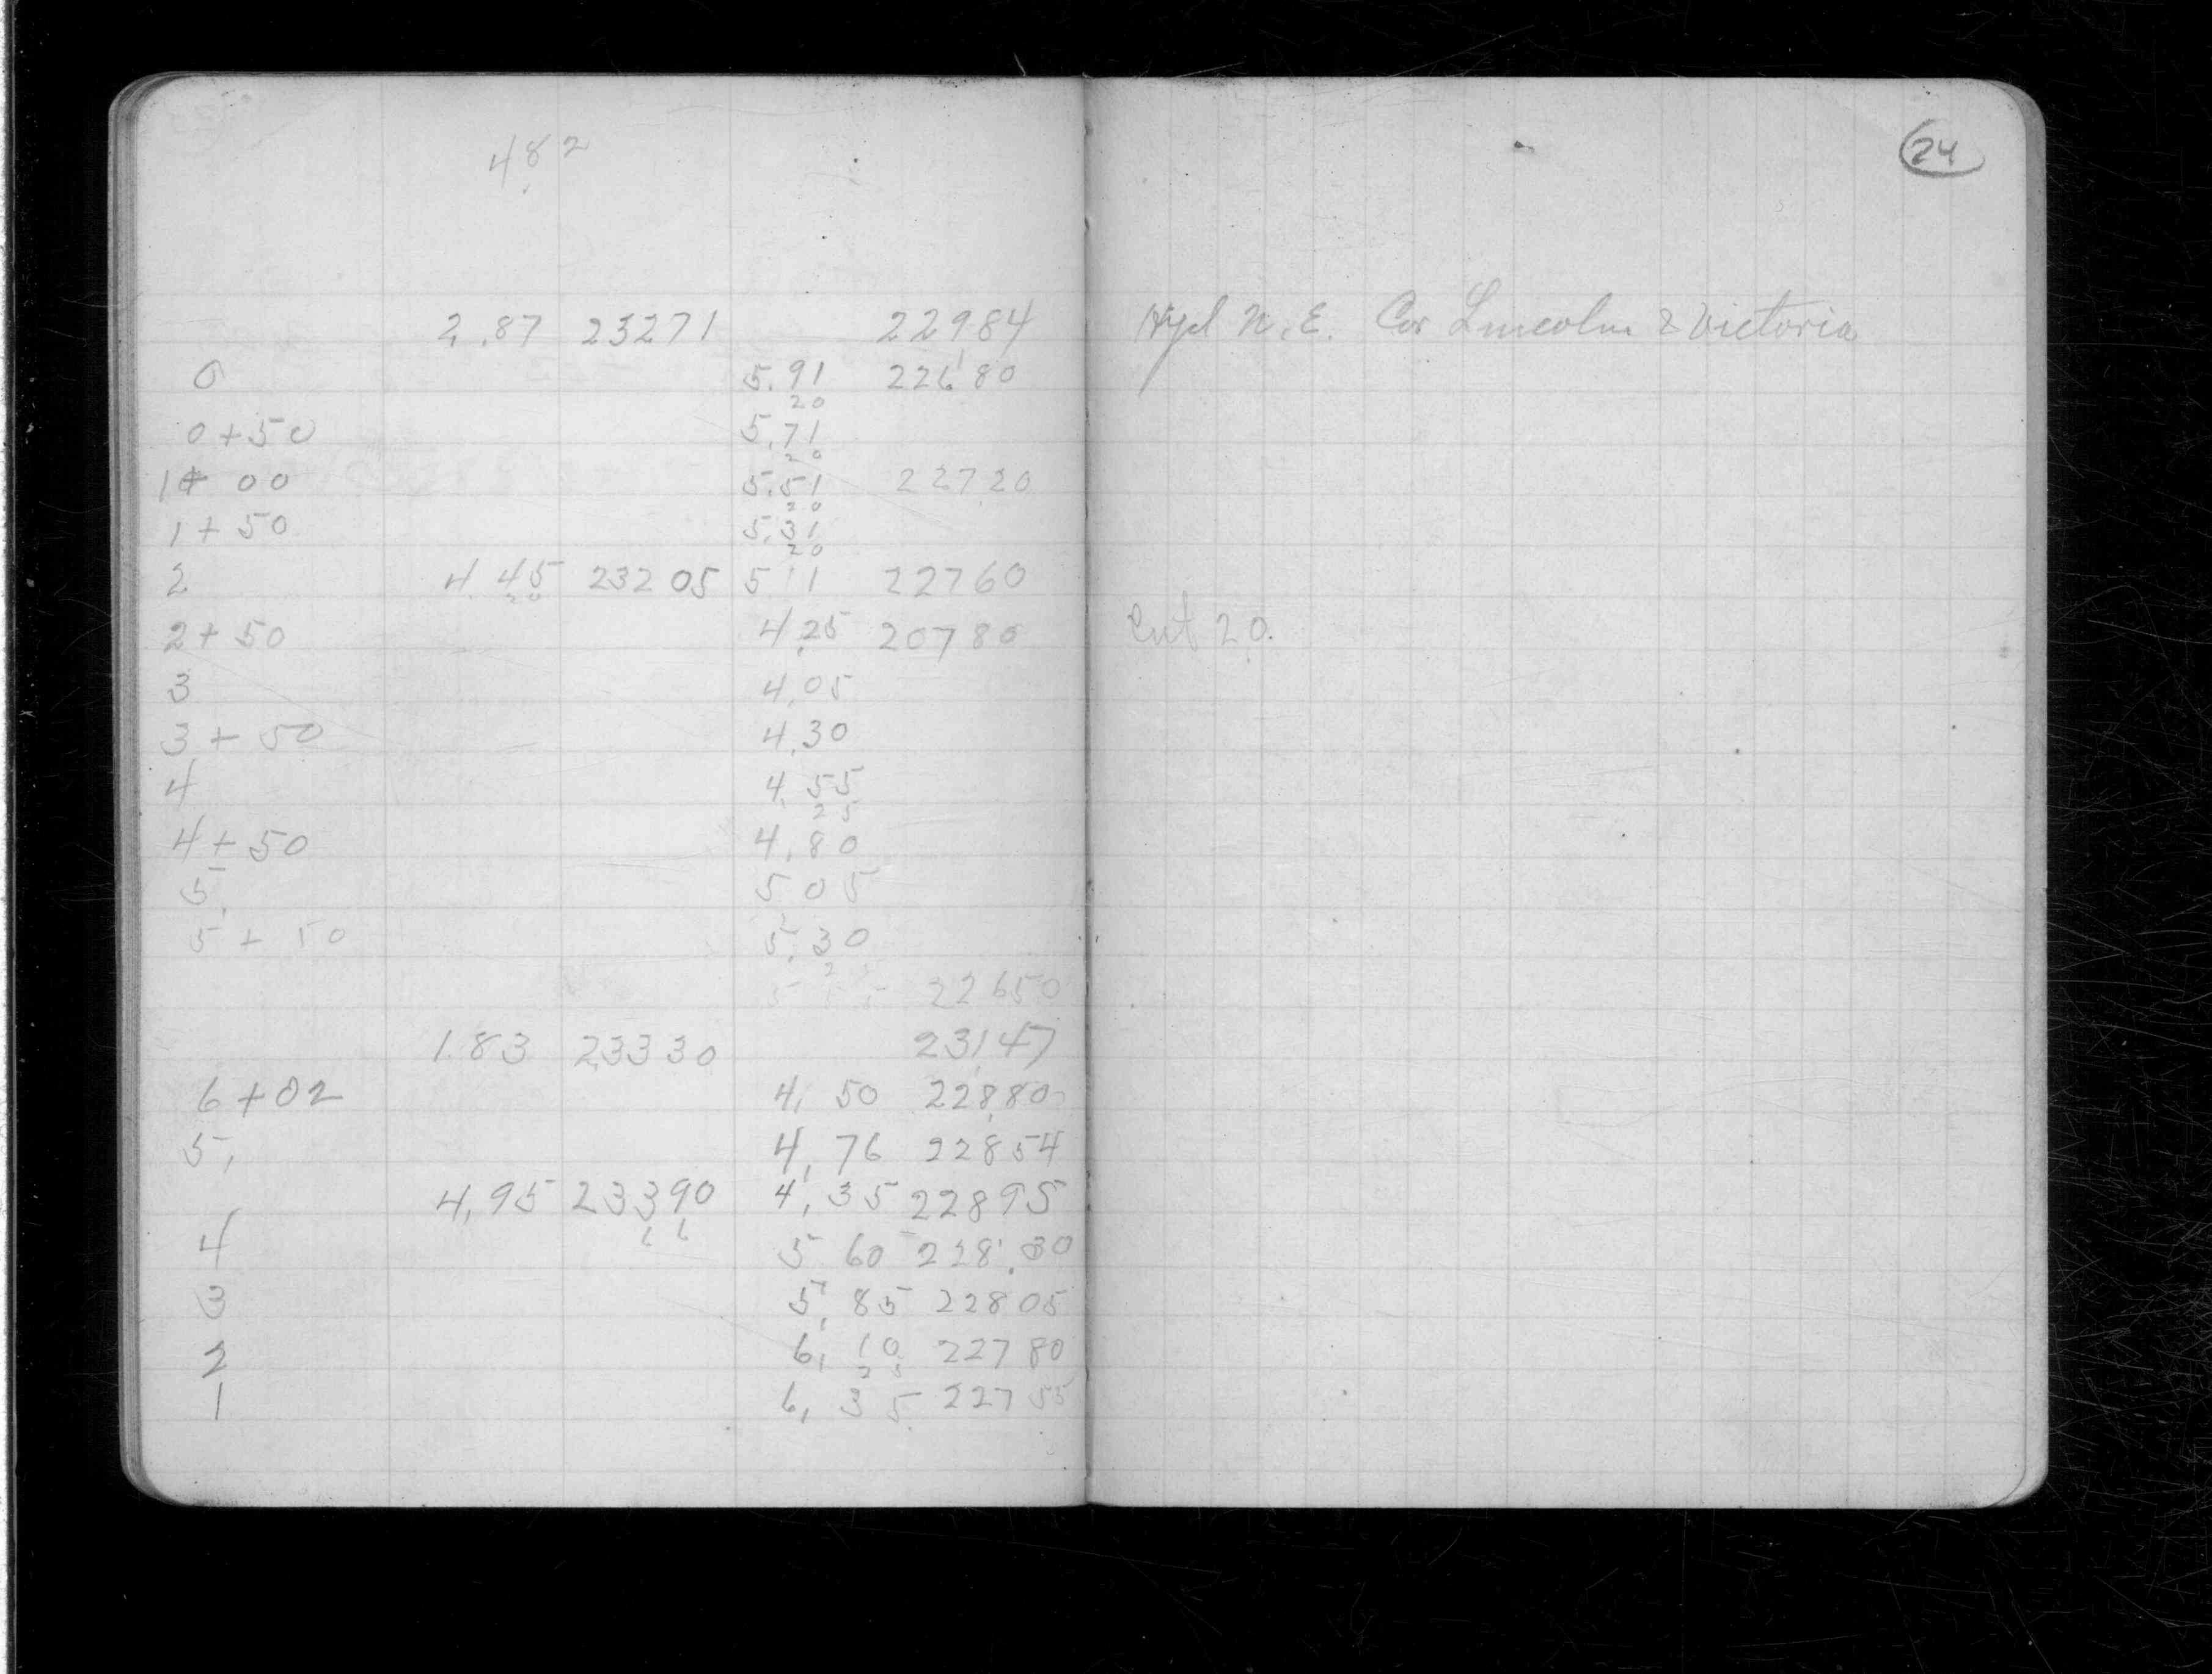 482
24
2.87 23271 22984 Hyd N.E. Cor Lincoln & Victoria
0 5.91 22680
20
0+50 5.71
20
1+00 5.51 22720
20
1+50 5.31
20
2 4.45 23205 5 11 22760
20
2+50 4.25 20780 Cut 20.
3 4.05
3+50 4.30
4 4.55
25
4+50 4.80
5 5 05
5+50 5.30
22650
1.83 23330 23147
6+02 4.50 22880
5. 4.76 22854
4.95 23390 4.35 22895
66
4 5 60 228.30
3 5.85 22805
2 6.10 22780
25
1 6.35 22755